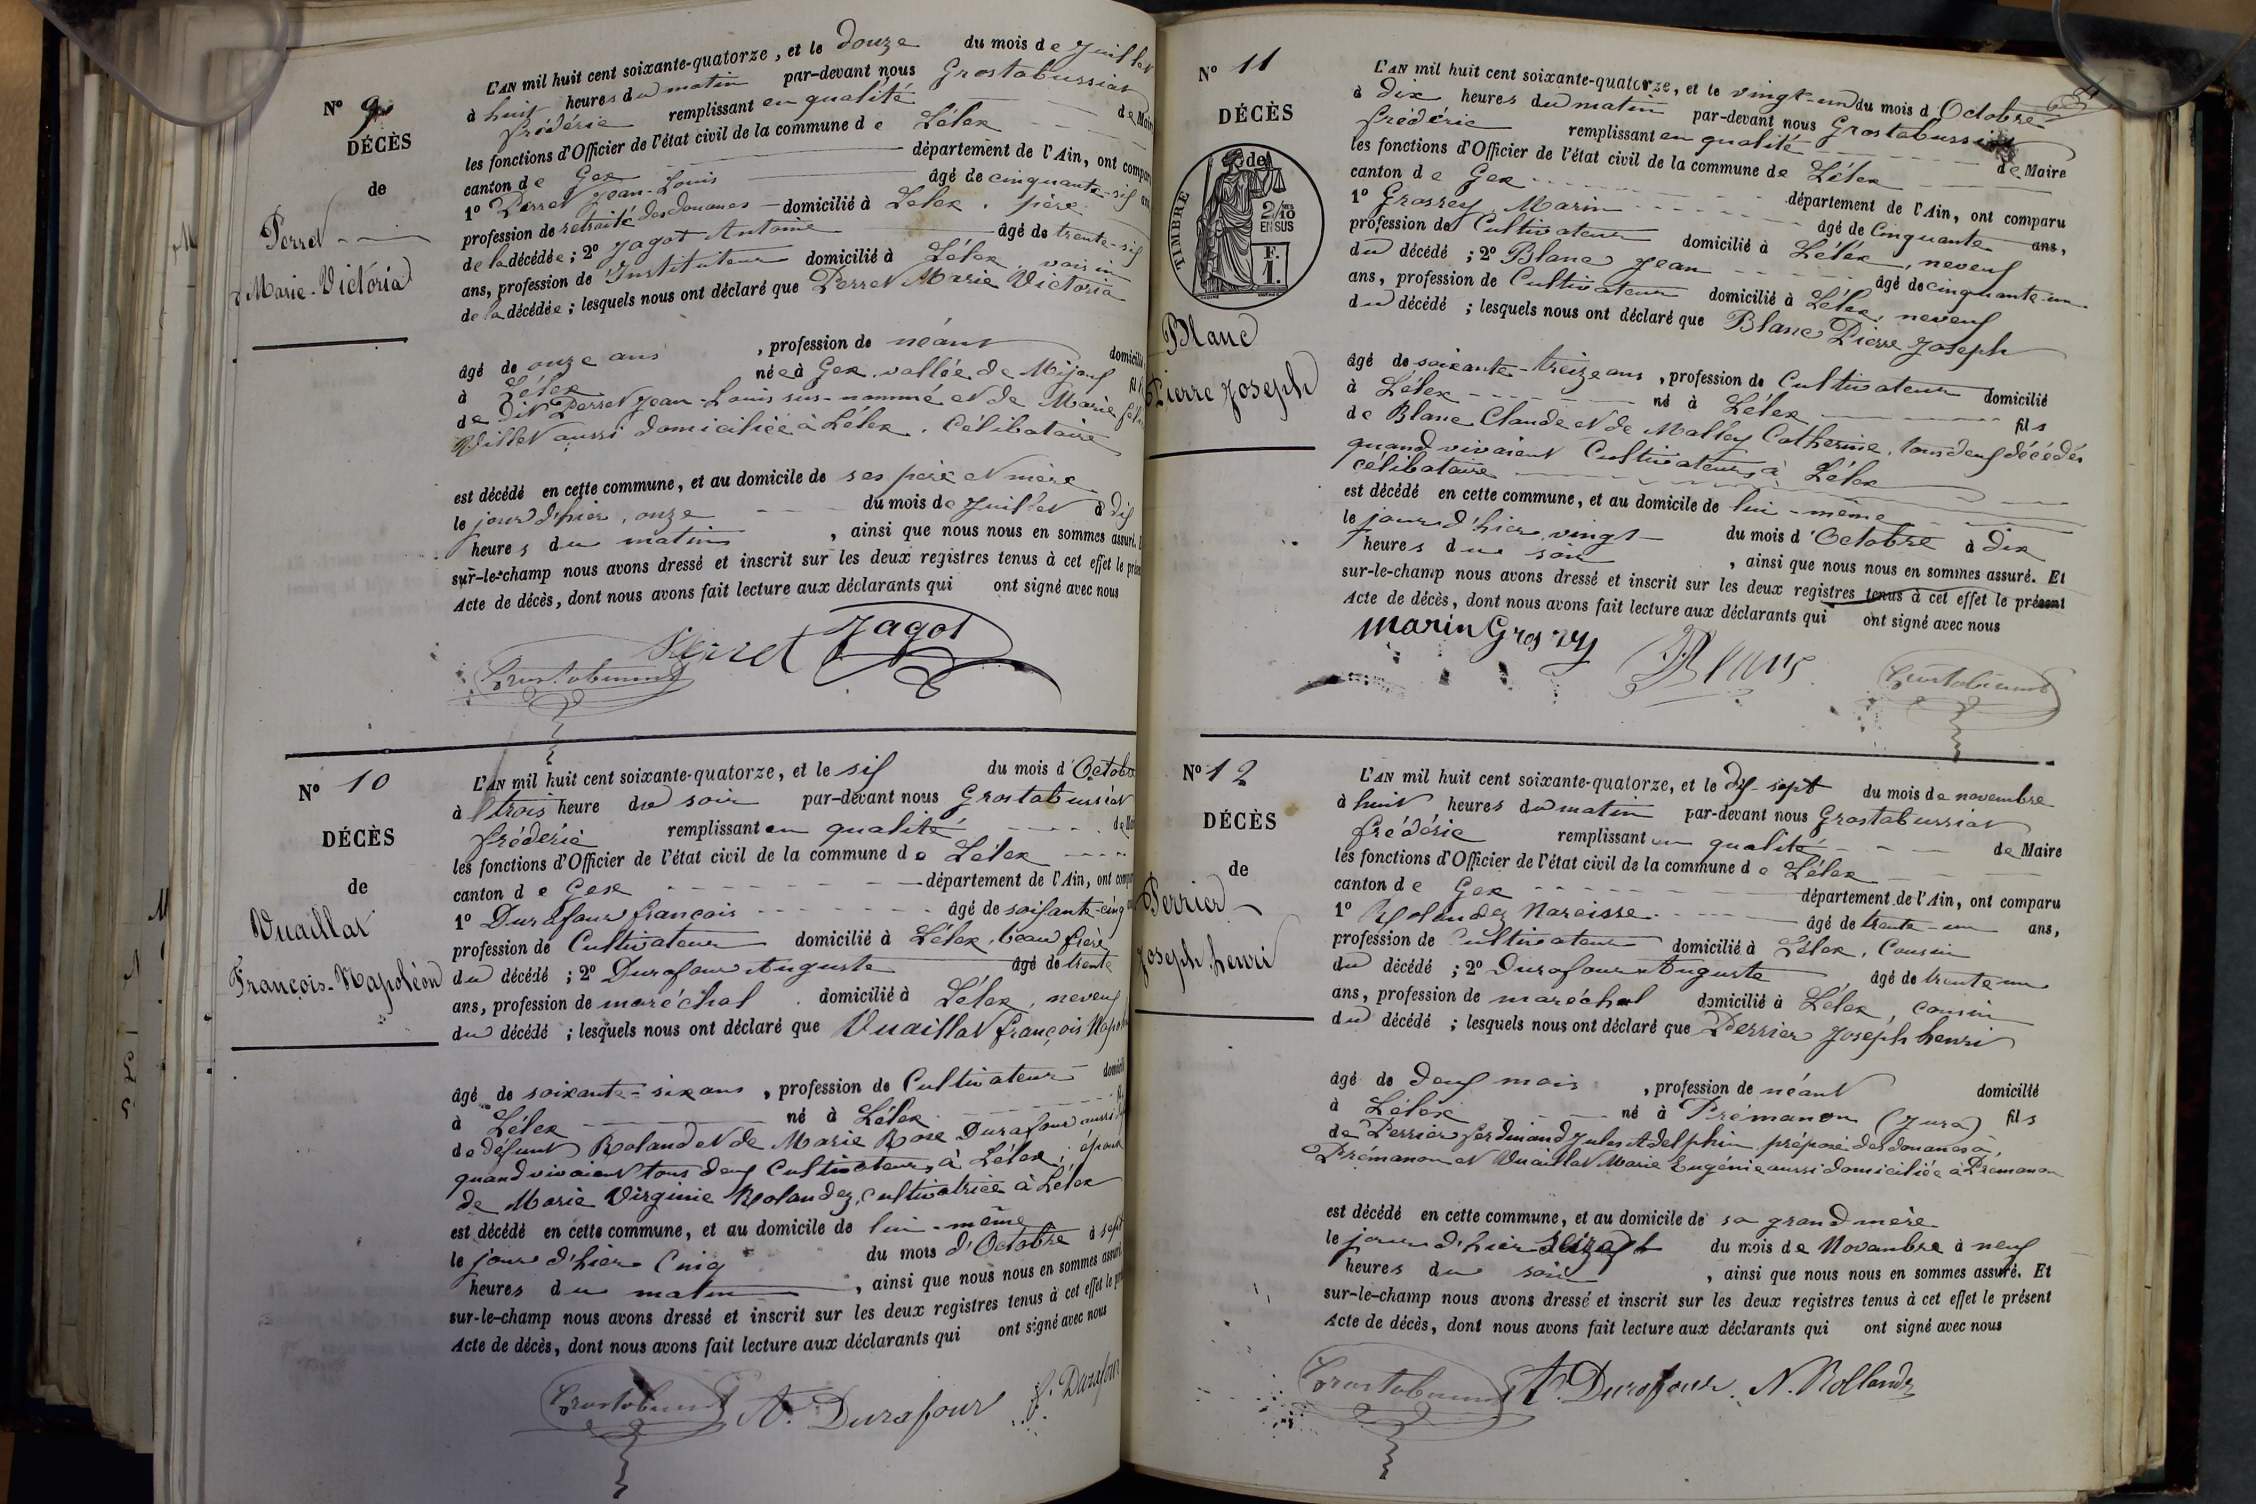 N° 9
DÉCÈS
de
Perret
Marie-Victoria
L'AN mil huit cent soixante-quatorze, et le douze du mois de Juillet
à huit heures du matin par-devant nous Grostabussiat
frédéric remplissant en qualité de Maire
les fonctions d'Officier de l'état civil de la commune de Lélex
canton de Gex département de l'Ain, ont compar
1° Perret Jean-Louis âgé de cinquante-six ans
profession de retraité des douanes domicilié à Lélex, père
de la décédée; 2° Jagot Antoine âgé de trente-six
ans, profession de Instituteur domicilié à Lélex, voisin
de la décédée; lesquels nous ont déclaré que Perret Marie Victoria
âgé de onze ans, profession de néant domicilié
à Lélex née à Gex, vallée de Mijoux fil
de Dit Perret Jean-Louis sus-nommé et de Marie
Villet aussi domiciliée à Lélex. Célibataire
est décédé en cette commune, et au domicile de ses père et mère
le jour d'hier, onze du mois de Juillet à dix
heures du matin, ainsi que nous nous en sommes assuré.
sur-le-champ nous avons dressé et inscrit sur les deux registres tenus à cet effet le présen
Acte de décès, dont nous avons fait lecture aux déclarants qui ont signé avec nous
Grostabussiat Perret Jagot
N° 10
DÉCÈS
de
Vuaillat
François-Napoléon
L'AN mil huit cent soixante-quatorze, et le six du mois d'Octobre
à trois heure du soir par-devant nous Grostabussiat
frédéric remplissant en qualité de Mai
les fonctions d'Officier de l'état civil de la commune de Lélex
canton de Gex département de l'Ain, ont compar
1° Durafour françois âgé de soixante-cinq
profession de Cultivateur domicilié à Lélex, beau frère
du décédé; 2° Durafour Auguste âgé de trente
ans, profession de maréchal domicilié à Lélex, neveux
du décédé; lesquels nous ont déclaré que Vuaillat françois Napoléon
âgé de soixante-six ans, profession de Cultivateur domicilié
à Lélex né à Lélex
de défunt Roland et de Marie Rose Durafour aussi
quand vivaient tous deux Cultivateurs à Lélex; époux
de Marie Virginie Rolandez, cultivatrice à Lélex
est décédé en cette commune, et au domicile de lui-même
le jour d'hier Cinq du mois d'Octobre à sept
heures du matin, ainsi que nous nous en sommes assuré.
sur-le-champ nous avons dressé et inscrit sur les deux registres tenus à cet effet le pré
Acte de décès, dont nous avons fait lecture aux déclarants qui ont signé avec nous
Grostabussiat A. Durafour f. Durafour
N° 11
DÉCÈS
de
TIMBRE
2/10 ms
EN SUS
F.
1.
Blanc
Pierre Joseph
L'AN mil huit cent soixante-quatorze, et le vingt-un du mois d'Octobre
à dix heures du matin par-devant nous Grostabussiat
frédéric remplissant en qualité de Maire
les fonctions d'Officier de l'état civil de la commune de Lélex
canton de Gex département de l'Ain, ont comparu
1° Grosrey Marin âgé de Cinquante ans,
profession de Cultivateur domicilié à Lélex, neveux
du décédé; 2° Blanc Jean âgé de cinquante-un
ans, profession de Cultivateur domicilié à Lélex, neveux
du décédé; lesquels nous ont déclaré que Blanc Pierre Joseph
âgé de soixante-treize ans, profession de Cultivateur domicilié
à Lélex né à Lélex fils
de Blanc Claude et de Malley Catherine, tous deux décédés
quand vivaient Cultivateurs à Lélex
célibataire
est décédé en cette commune, et au domicile de lui-même
le jour d'hier vingt du mois d'Octobre à dix
heures du soir, ainsi que nous nous en sommes assuré. Et
sur-le-champ nous avons dressé et inscrit sur les deux registres tenus à cet effet le présent
Acte de décès, dont nous avons fait lecture aux déclarants qui ont signé avec nous
Marin Grosrey Blanc Grostabussiat
N° 12
DÉCÈS
de
Perrier
Joseph henri
L'AN mil huit cent soixante-quatorze, et le dix-sept du mois de novembre
à huit heures du matin par-devant nous Grostabussiat
frédéric remplissant en qualité de Maire
les fonctions d'Officier de l'état civil de la commune de Lélex
canton de Gex département de l'Ain, ont comparu
1° Rolandez Narcisse âgé de trente-un ans,
profession de Cultivateur domicilié à Lélex, Cousin
du décédé; 2° Durafour Auguste âgé de trente un
ans, profession de maréchal domicilié à Lélex, cousin
du décédé; lesquels nous ont déclaré que Perrier Joseph henri
âgé de deux mois, profession de néant domicilié
à Lélex né à Prémanon (Jura) fils
de Perrier ferdinand Jules Adelphin, préposé des douanes à
Prémanon et Vuaillat Marie Eugénie aussi domiciliée à Prémanon
est décédé en cette commune, et au domicile de sa grand mère
le jour d'hier seize du mois de Novembre à neuf
heures du soir, ainsi que nous nous en sommes assuré. Et
sur-le-champ nous avons dressé et inscrit sur les deux registres tenus à cet effet le présent
Acte de décès, dont nous avons fait lecture aux déclarants qui ont signé avec nous
Grostabussiat A. Durafour N. Rollandez